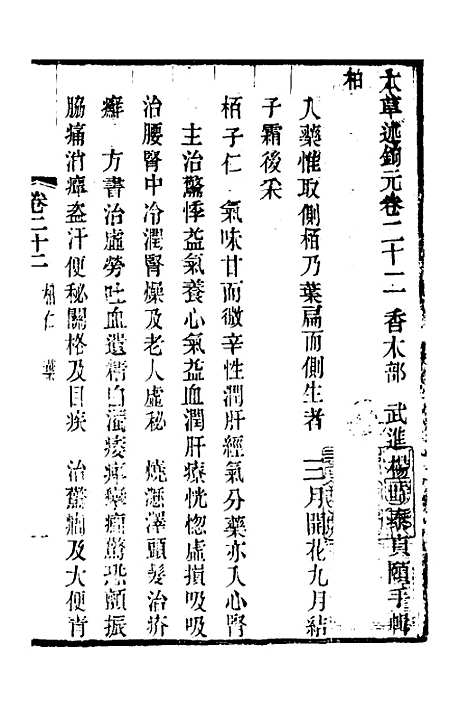 本草述鉤元卷二十二 香木部 武進楊時泰貞頤手輯
柏
入藥惟取側栢乃葉扁而側生者 三月開花九月結
子霜後采
栢子仁 氣味甘而微辛性潤肝經氣分藥亦入心腎
主治驚悸益氣養心氣益血潤肝療恍惚虛損吸吸
治腰腎中冷潤腎燥及老人虛秘 燒瀝澤頭髮治疥
癬 方書治虛勞吐血遺精白濁痿痺攣癇驚恐顫振
脇痛消癉盜汗便秘關格及目疾 治驚癇及大便青
卷二十二 柏仁 葉 一